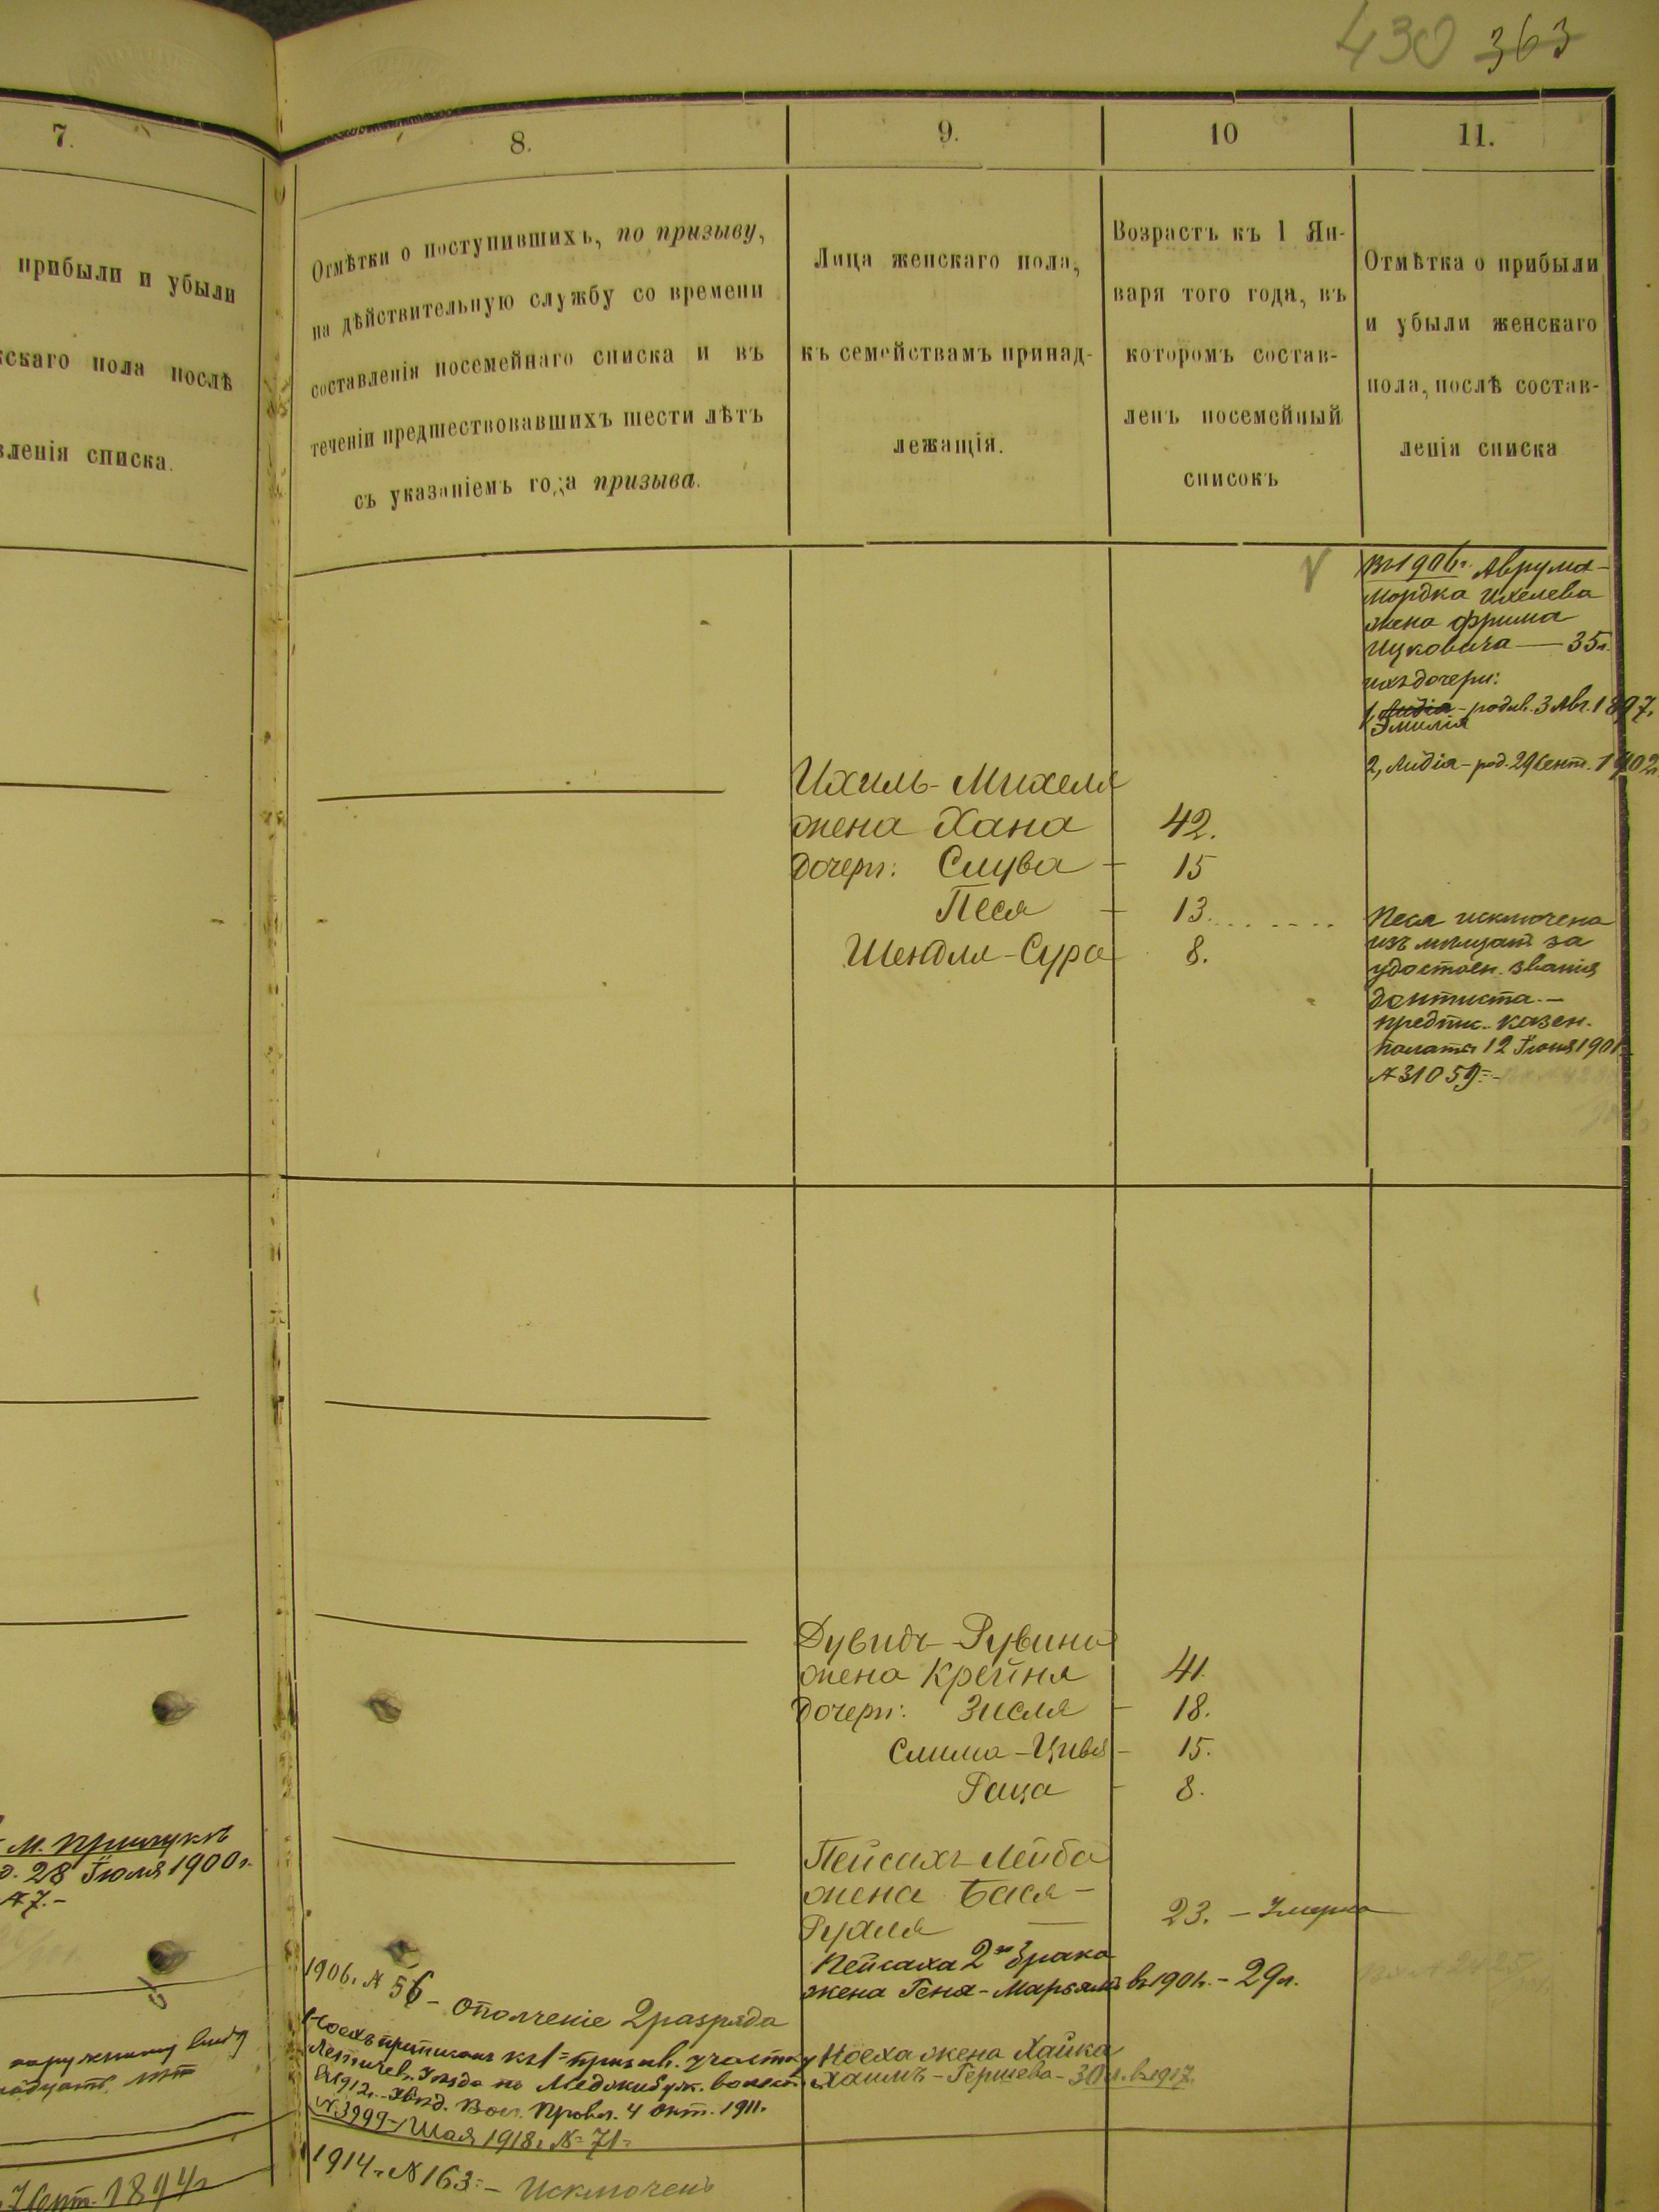 430 363
7.
8.
9.
10
11.
прибыли и убыли
скаго пола послѣ
вленія списка.
Отмѣтки о поступившихъ, по призыву,
на дѣйствительную службу со времени
составленія посемейнаго списка и въ
теченіи предшествовавшихъ шести лѣтъ
съ указаніемъ года призыва.
Лица женскаго пола,
къ семействамъ принад-
лежащія.
Возрастъ къ 1 Ян-
варя того года, въ
которомъ состав-
ленъ посемейный
списокъ
Отмѣтка о прибыли
и убыли женскаго
пола, послѣ состав-
ленія списка
Въ 1906г. Аврума-
Мордка Ихелева
жена Фрима
Ицковича — 35л.
ихъ дочери:
1, Лидія - родив. 3 Авг. 1897.
Эмилія
2, Лидія - род. 29 Сент. 1902г.
Ихиль-Михеля
жена Хана 42.
дочери: Слува - 15
Песя - 13.
Шендля-Сура 8.
Песя исключена
изъ мѣщан за
удостоен. званія
дантиста.-
предпис. казен.
палаты 12 Іюня 1901г.
№ 31059.-
Дувидъ-Рувина
жена Крейня 41.
дочери: Зисля - 18.
Слима-Цивья - 15.
Раца - 8.
М. Прилукъ
28 Іюля 1900г.
№ 7.-
Пейсахъ-Лейба
жена Бася-
Рухля — 23. - Умерла
Пейсаха 2го брака
жена Геня-Марьямъ въ 1901г. - 29л.
1906г. № 56 - ополченіе 2 разряда
Ноехъ приписанъ къ 1 призыв. участку
Летичев. Уѣзда по Меджибуж. волости
въ 1912г. - Увѣд. Вол. Правл. 4 Окт. 1911г.
№ 3999 - 1918г. № 71
Ноеха жена Хайка
Хаимъ-Гершева - 30 л. въ 1917.
наружному виду
1914г. № 163. - Исключенъ
1894г